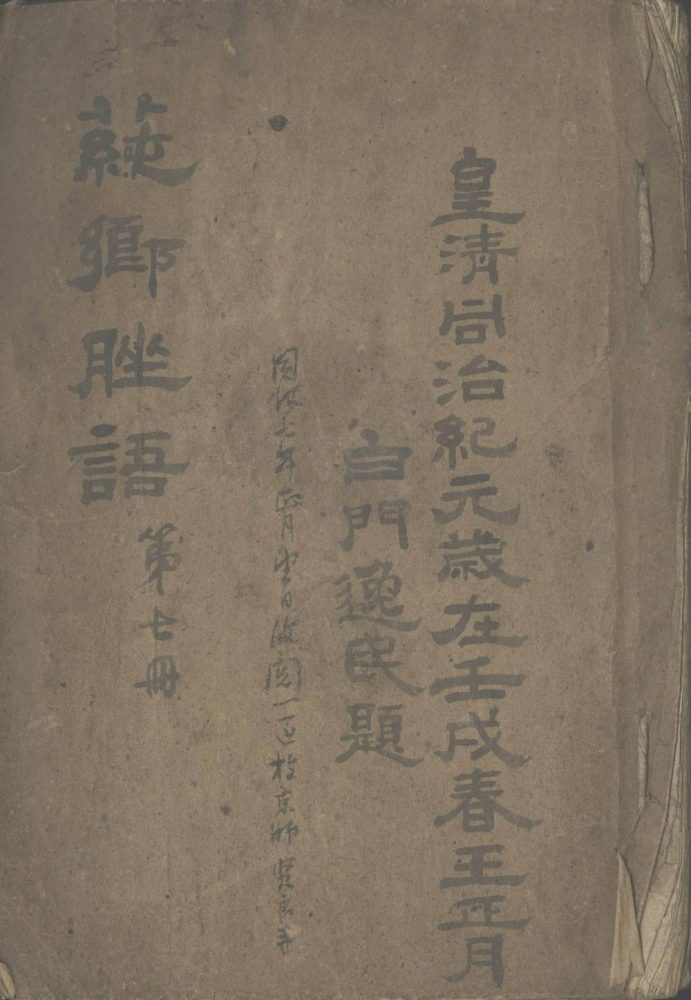 皇清同治紀元歲在壬戌春王正月
白門逸民題
同治七年 月 日 閱一 於京師賢良寺
鄉脞語
第七冊